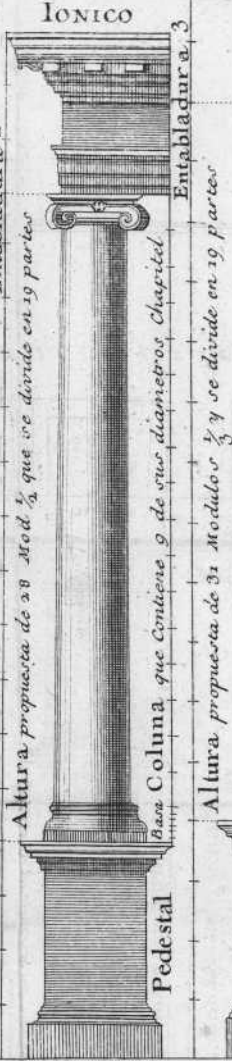 IONICO
Altura propuesta de 28 Mod ½ que se divide en 19 partes
Entabladura 3
Basa Coluna que Contiene 9 de sus diametros Chapitel
Pedestal
Altura propuesta de 31 Modulos ⅔ y se divide en 19 partes